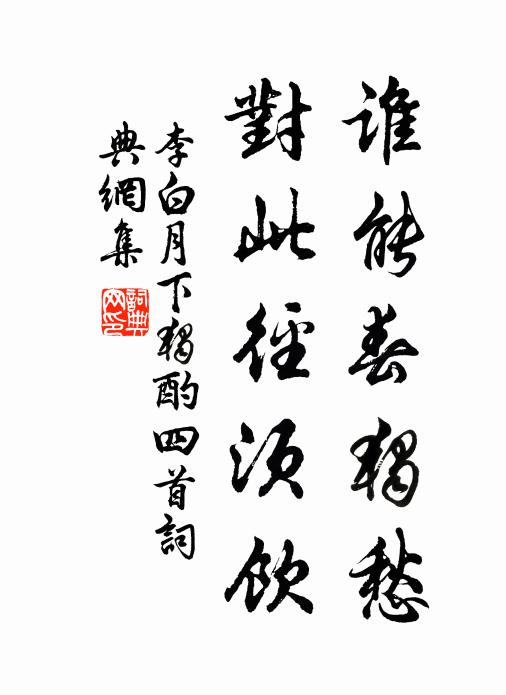 誰能春獨愁
對此徑須飲
李白月下獨酌四首詞
典網集
詞典網印